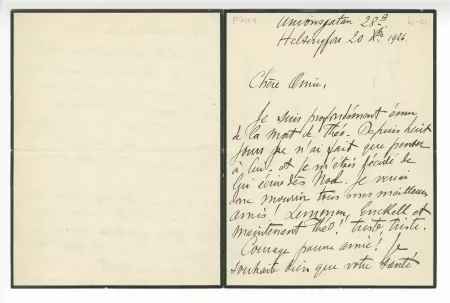 Finch
Unionsgatan 28B
Helsingfors 20 Xbre 1926
Chère Amie,
Je suis profondément ému
de la mort de Théo. Depuis huit
jours je n'ai fait que penser
à lui et je m'étais décidé de
lui écrire dès Noël. Je verrai
donc mourir tous mes meilleurs
amis! Lemmen, Enckell et
maintenant Théo! triste, triste.
Courage pauvre amie! Je
souhaite bien que votre santé